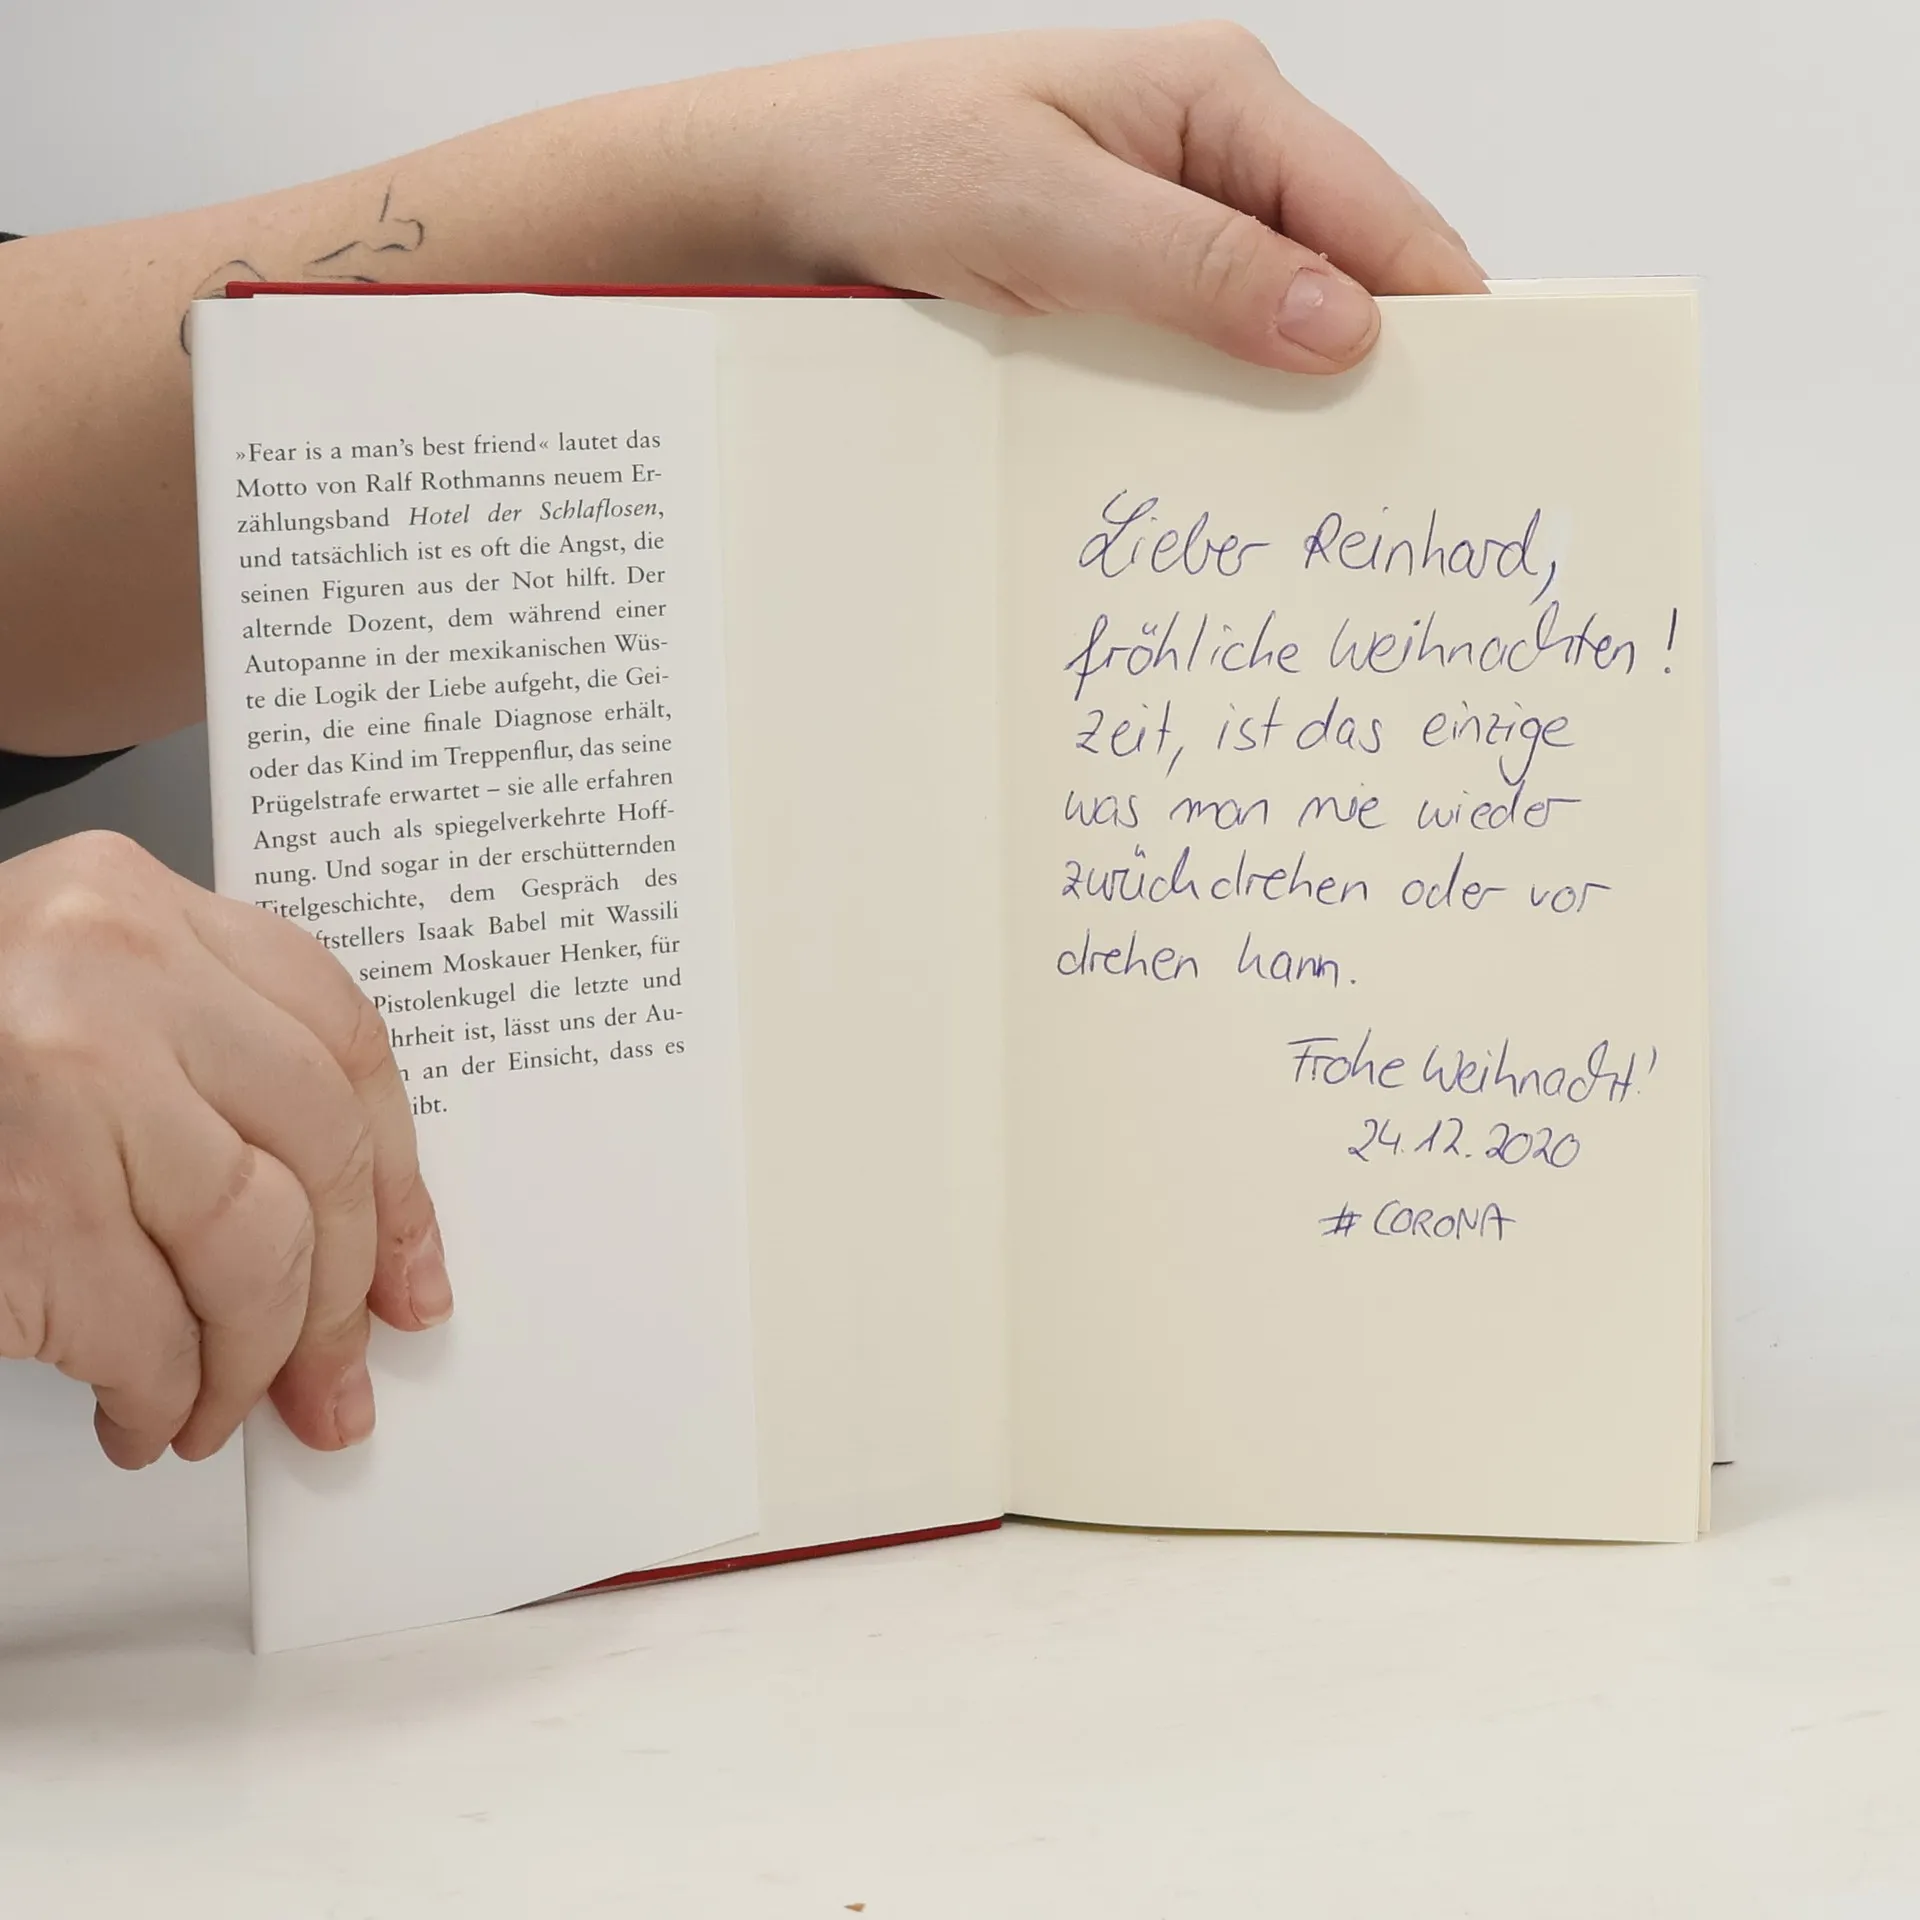 »Fear is a man's best friend« lautet das
Motto von Ralf Rothmanns neuem Er-
zählungsband Hotel der Schlaflosen,
und tatsächlich ist es oft die Angst, die
seinen Figuren aus der Not hilft. Der
alternde Dozent, dem während einer
Autopanne in der mexikanischen Wüs-
te die Logik der Liebe aufgeht, die Gei-
gerin, die eine finale Diagnose erhält,
oder das Kind im Treppenflur, das seine
Prügelstrafe erwartet – sie alle erfahren
Angst auch als spiegelverkehrte Hoff-
nung. Und sogar in der erschütternden
Titelgeschichte, dem Gespräch des
ftstellers Isaak Babel mit Wassili
seinem Moskauer Henker, für
Pistolenkugel die letzte und
hrheit ist, lässt uns der Au-
n an der Einsicht, dass es
ibt.
Lieber Reinhard,
fröhliche Weihnachten!
Zeit, ist das einzige
was man nie wieder
zurückdrehen oder vor
drehen kann.
Frohe Weihnacht!
24.12.2020
# CORONA